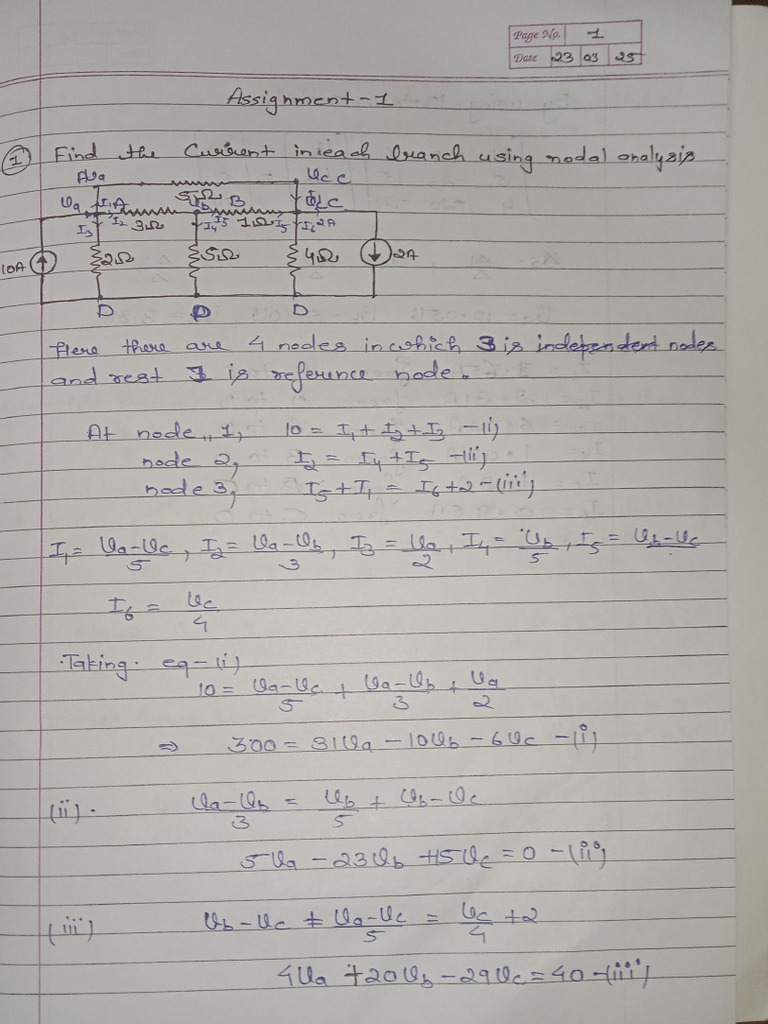 Page No. 1
Date 23 03 25
Assignment-1
① Find the Current in each branch using nodal analysis
A Va Vc C
5Ω
Va I1 A Vb B C
I2 3Ω I4 I5 1Ω I5 I6 2A
I3
10A 2Ω 5Ω 4Ω 2A
D D D
Here there are 4 nodes in which 3 is independent nodes
and rest 1 is reference node.
At node 1, 10 = I1 + I2 + I3 -(i)
node 2, I2 = I4 + I5 -(ii)
node 3, I5 + I1 = I6 + 2 -(iii)
I1 = Va-Vc/5 , I2 = Va-Vb/3 , I3 = Va/2 , I4 = Vb/5 , I5 = Vb-Vc
I6 = Vc/4
Taking eq-(i)
10 = Va-Vc/5 + Va-Vb/3 + Va/2
⇒ 300 = 31Va - 10Vb - 6Vc -(i)
(ii). Va-Vb/3 = Vb/5 + Vb-Vc
5Va - 23Vb +15Vc = 0 -(ii)
(iii) Vb-Vc + Va-Vc/5 = Vc/4 + 2
4Va + 20Vb - 29Vc = 40 -(iii)